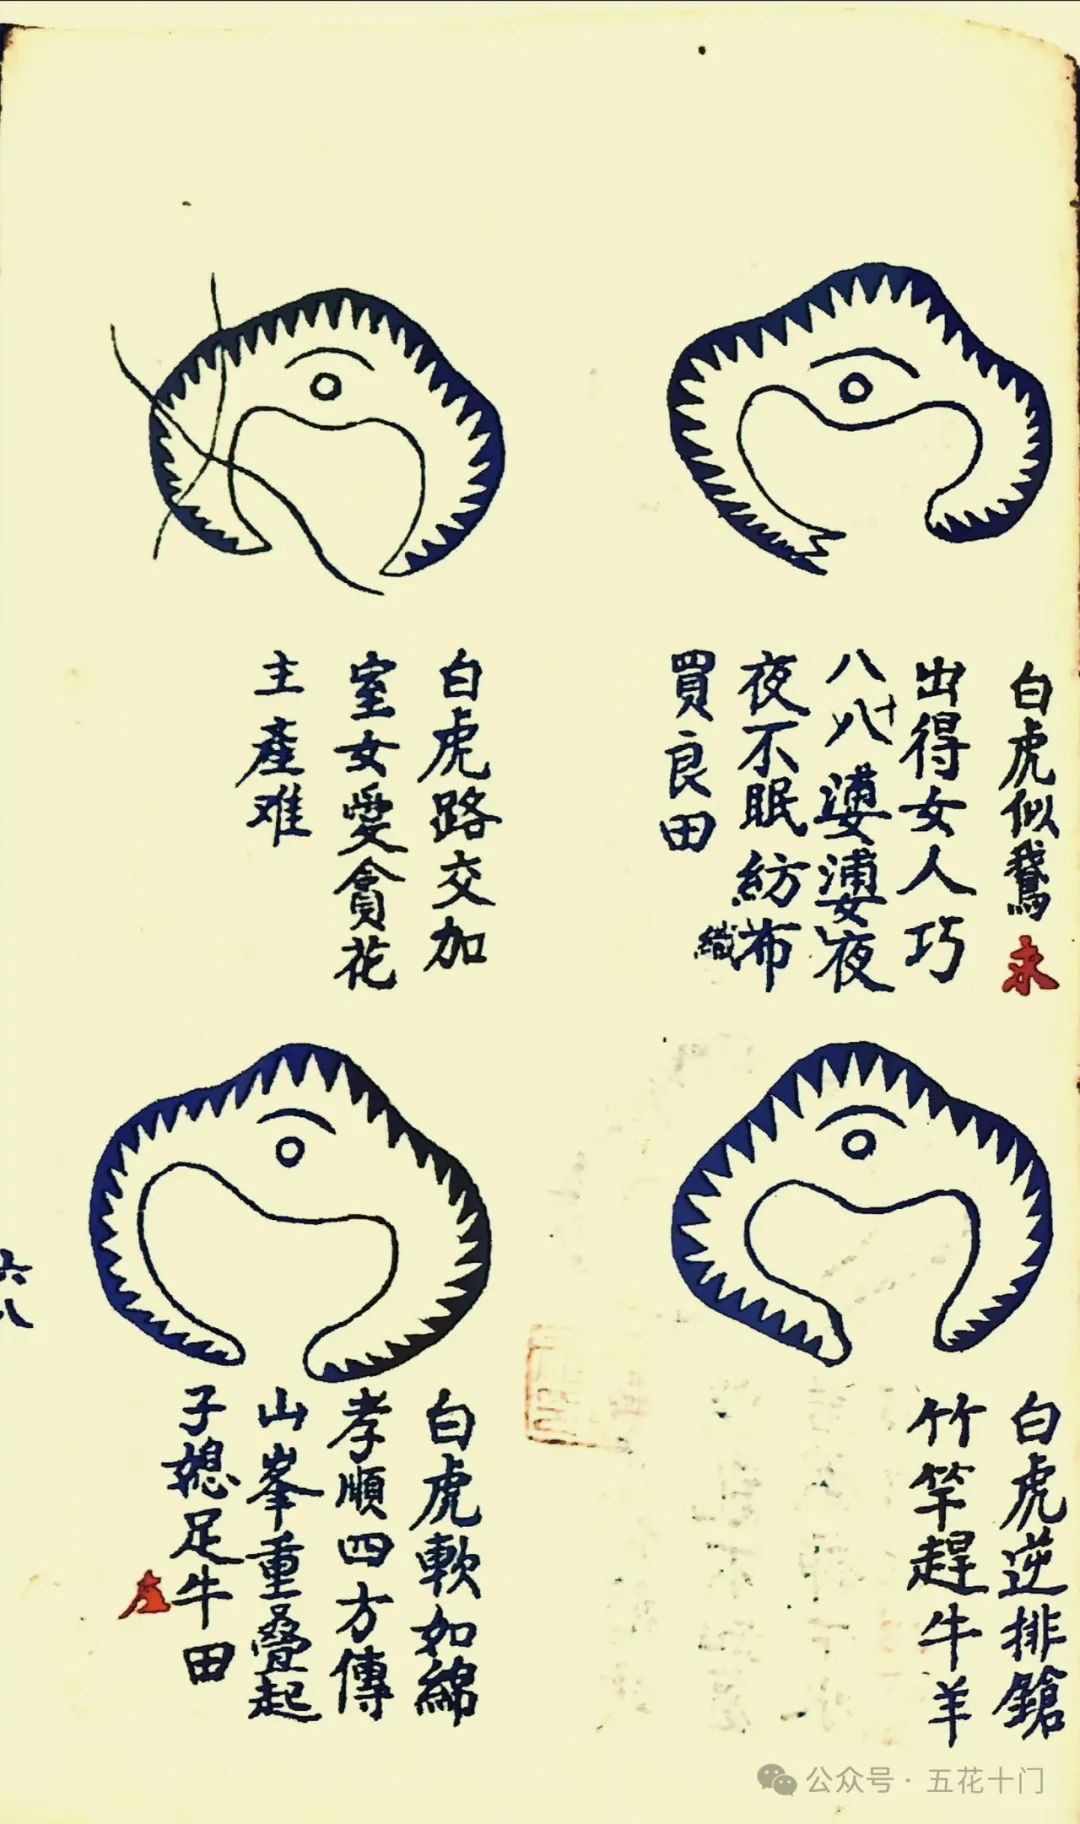 白虎似鵝
求
出得女人巧
八八十婆婆夜
夜不眠紡布
織
買良田
白虎路交加
室女愛貪花
主產难
白虎逆排鎗
竹竿趕牛羊
白虎軟如綿
孝順四方傳
山峯重疊起
子媳足牛田
六八
公众号·五花十门